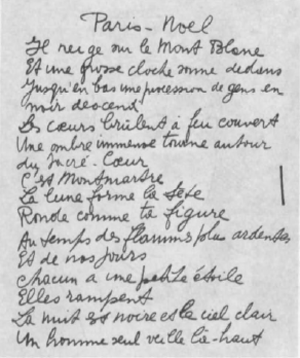 Paris-Noel
Il neige sur le Mont Blanc
Et une grosse cloche sonne dedans
Jusqu'en bas une procession de gens en
noir descend
Les cœurs brûlent à feu couvert
Une ombre immense tourne autour
du Sacré-Cœur
C'est Montmartre
La lune forme la tête
Ronde comme ta figure
Au temps des flammes plus ardentes
Et de nos jours
Chacun a une petite étoile
Elles rampent
La nuit est noire et le ciel clair
Un homme seul veille là-haut